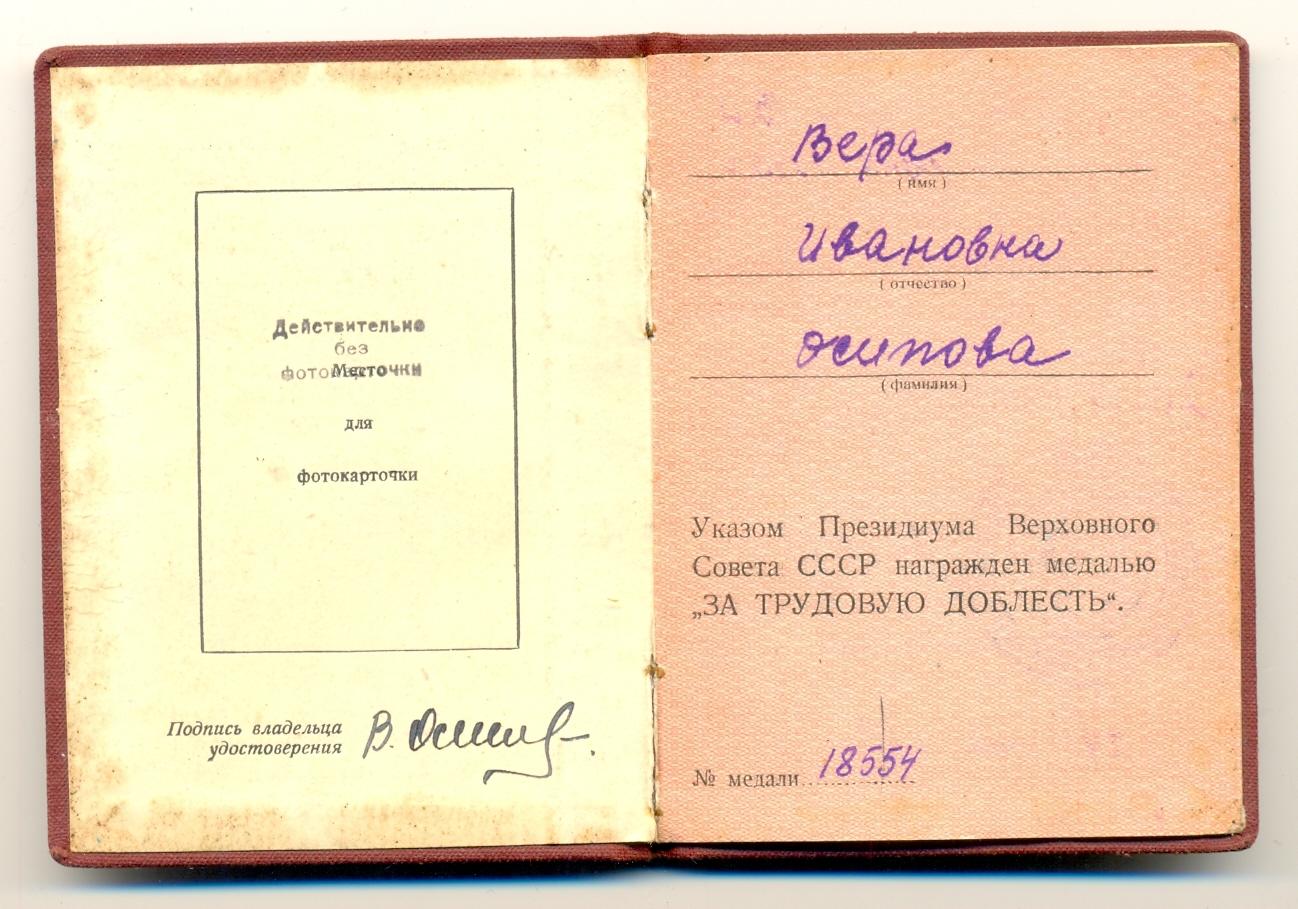 Действительно
без
фотокарточки
Место
для
фотокарточки
Подпись владельца
удостоверения
В. Осипов
Вера
(имя)
Ивановна
(отчество)
Осипова
(фамилия)
Указом Президиума Верховного
Совета СССР награжден медалью
„ЗА ТРУДОВУЮ ДОБЛЕСТЬ“.
№ медали 18554